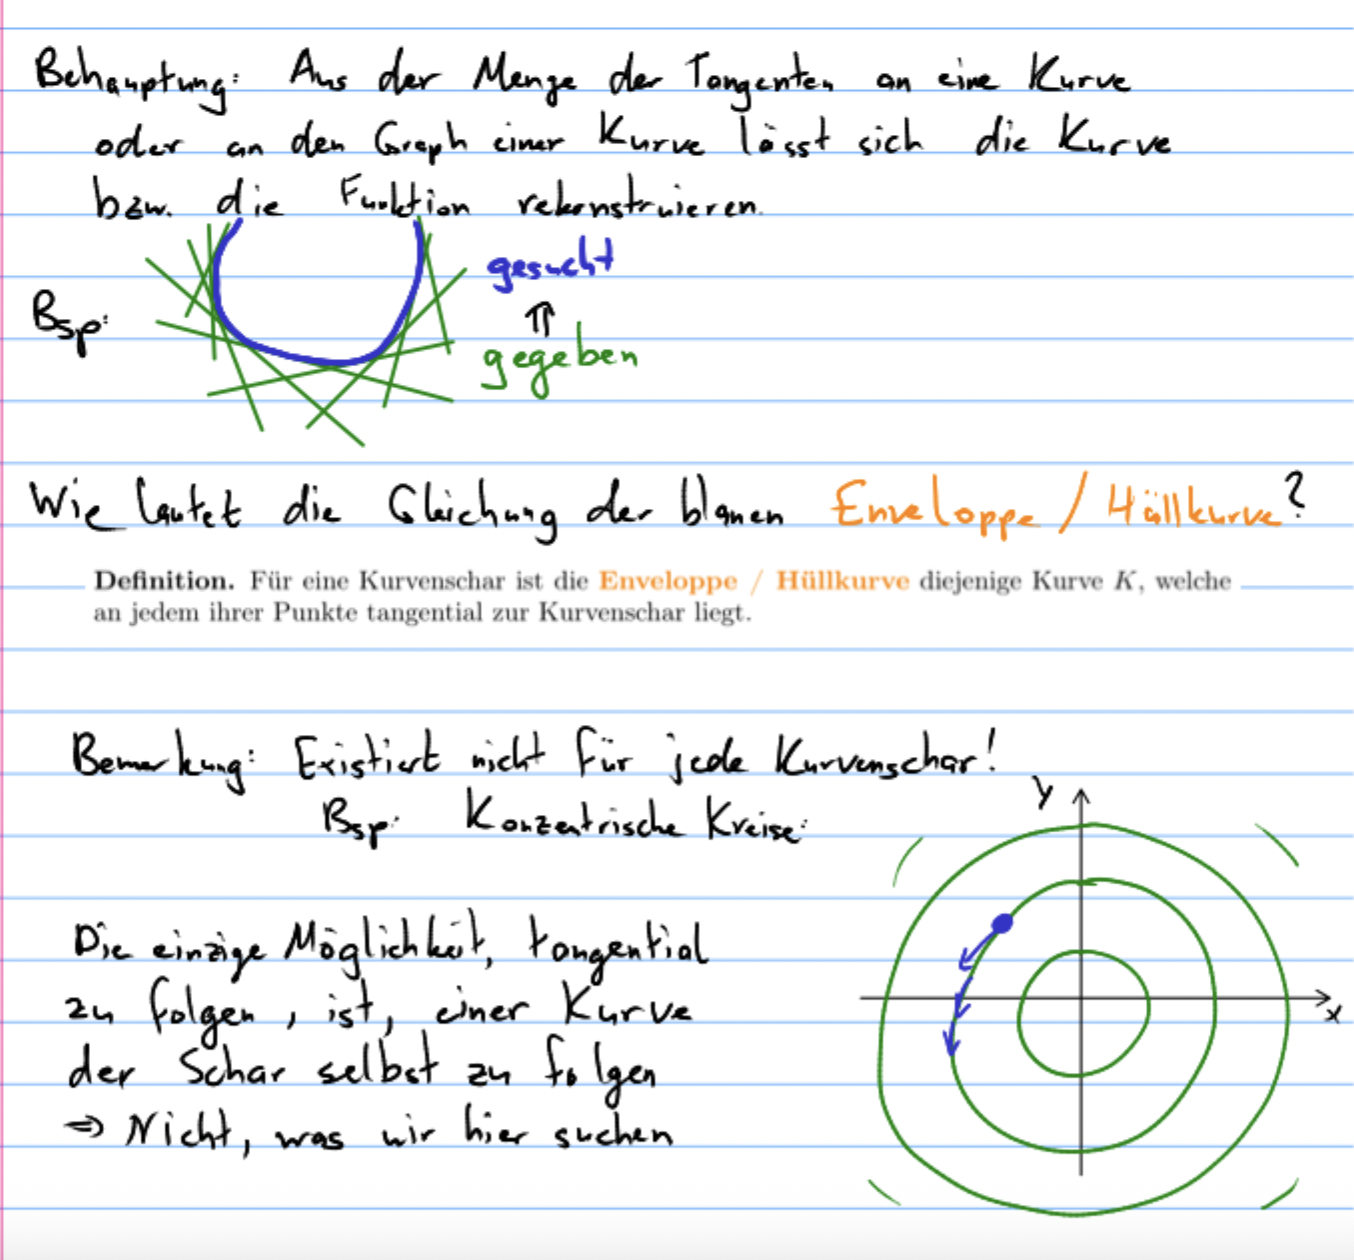 Behauptung: Aus der Menge der Tangenten an eine Kurve
oder an den Graph einer Kurve lässt sich die Kurve
bzw. die Funktion rekonstruieren.
gesucht
Bsp:
⇑
gegeben
Wie lautet die Gleichung der blauen Enveloppe / Hüllkurve?
Definition. Für eine Kurvenschar ist die Enveloppe / Hüllkurve diejenige Kurve K, welche
an jedem ihrer Punkte tangential zur Kurvenschar liegt.
Bemerkung: Existiert nicht für jede Kurvenschar!
y
Bsp: Konzentrische Kreise:
Die einzige Möglichkeit, tangential
zu folgen, ist, einer Kurve
x
der Schar selbst zu folgen
⇒ Nicht, was wir hier suchen